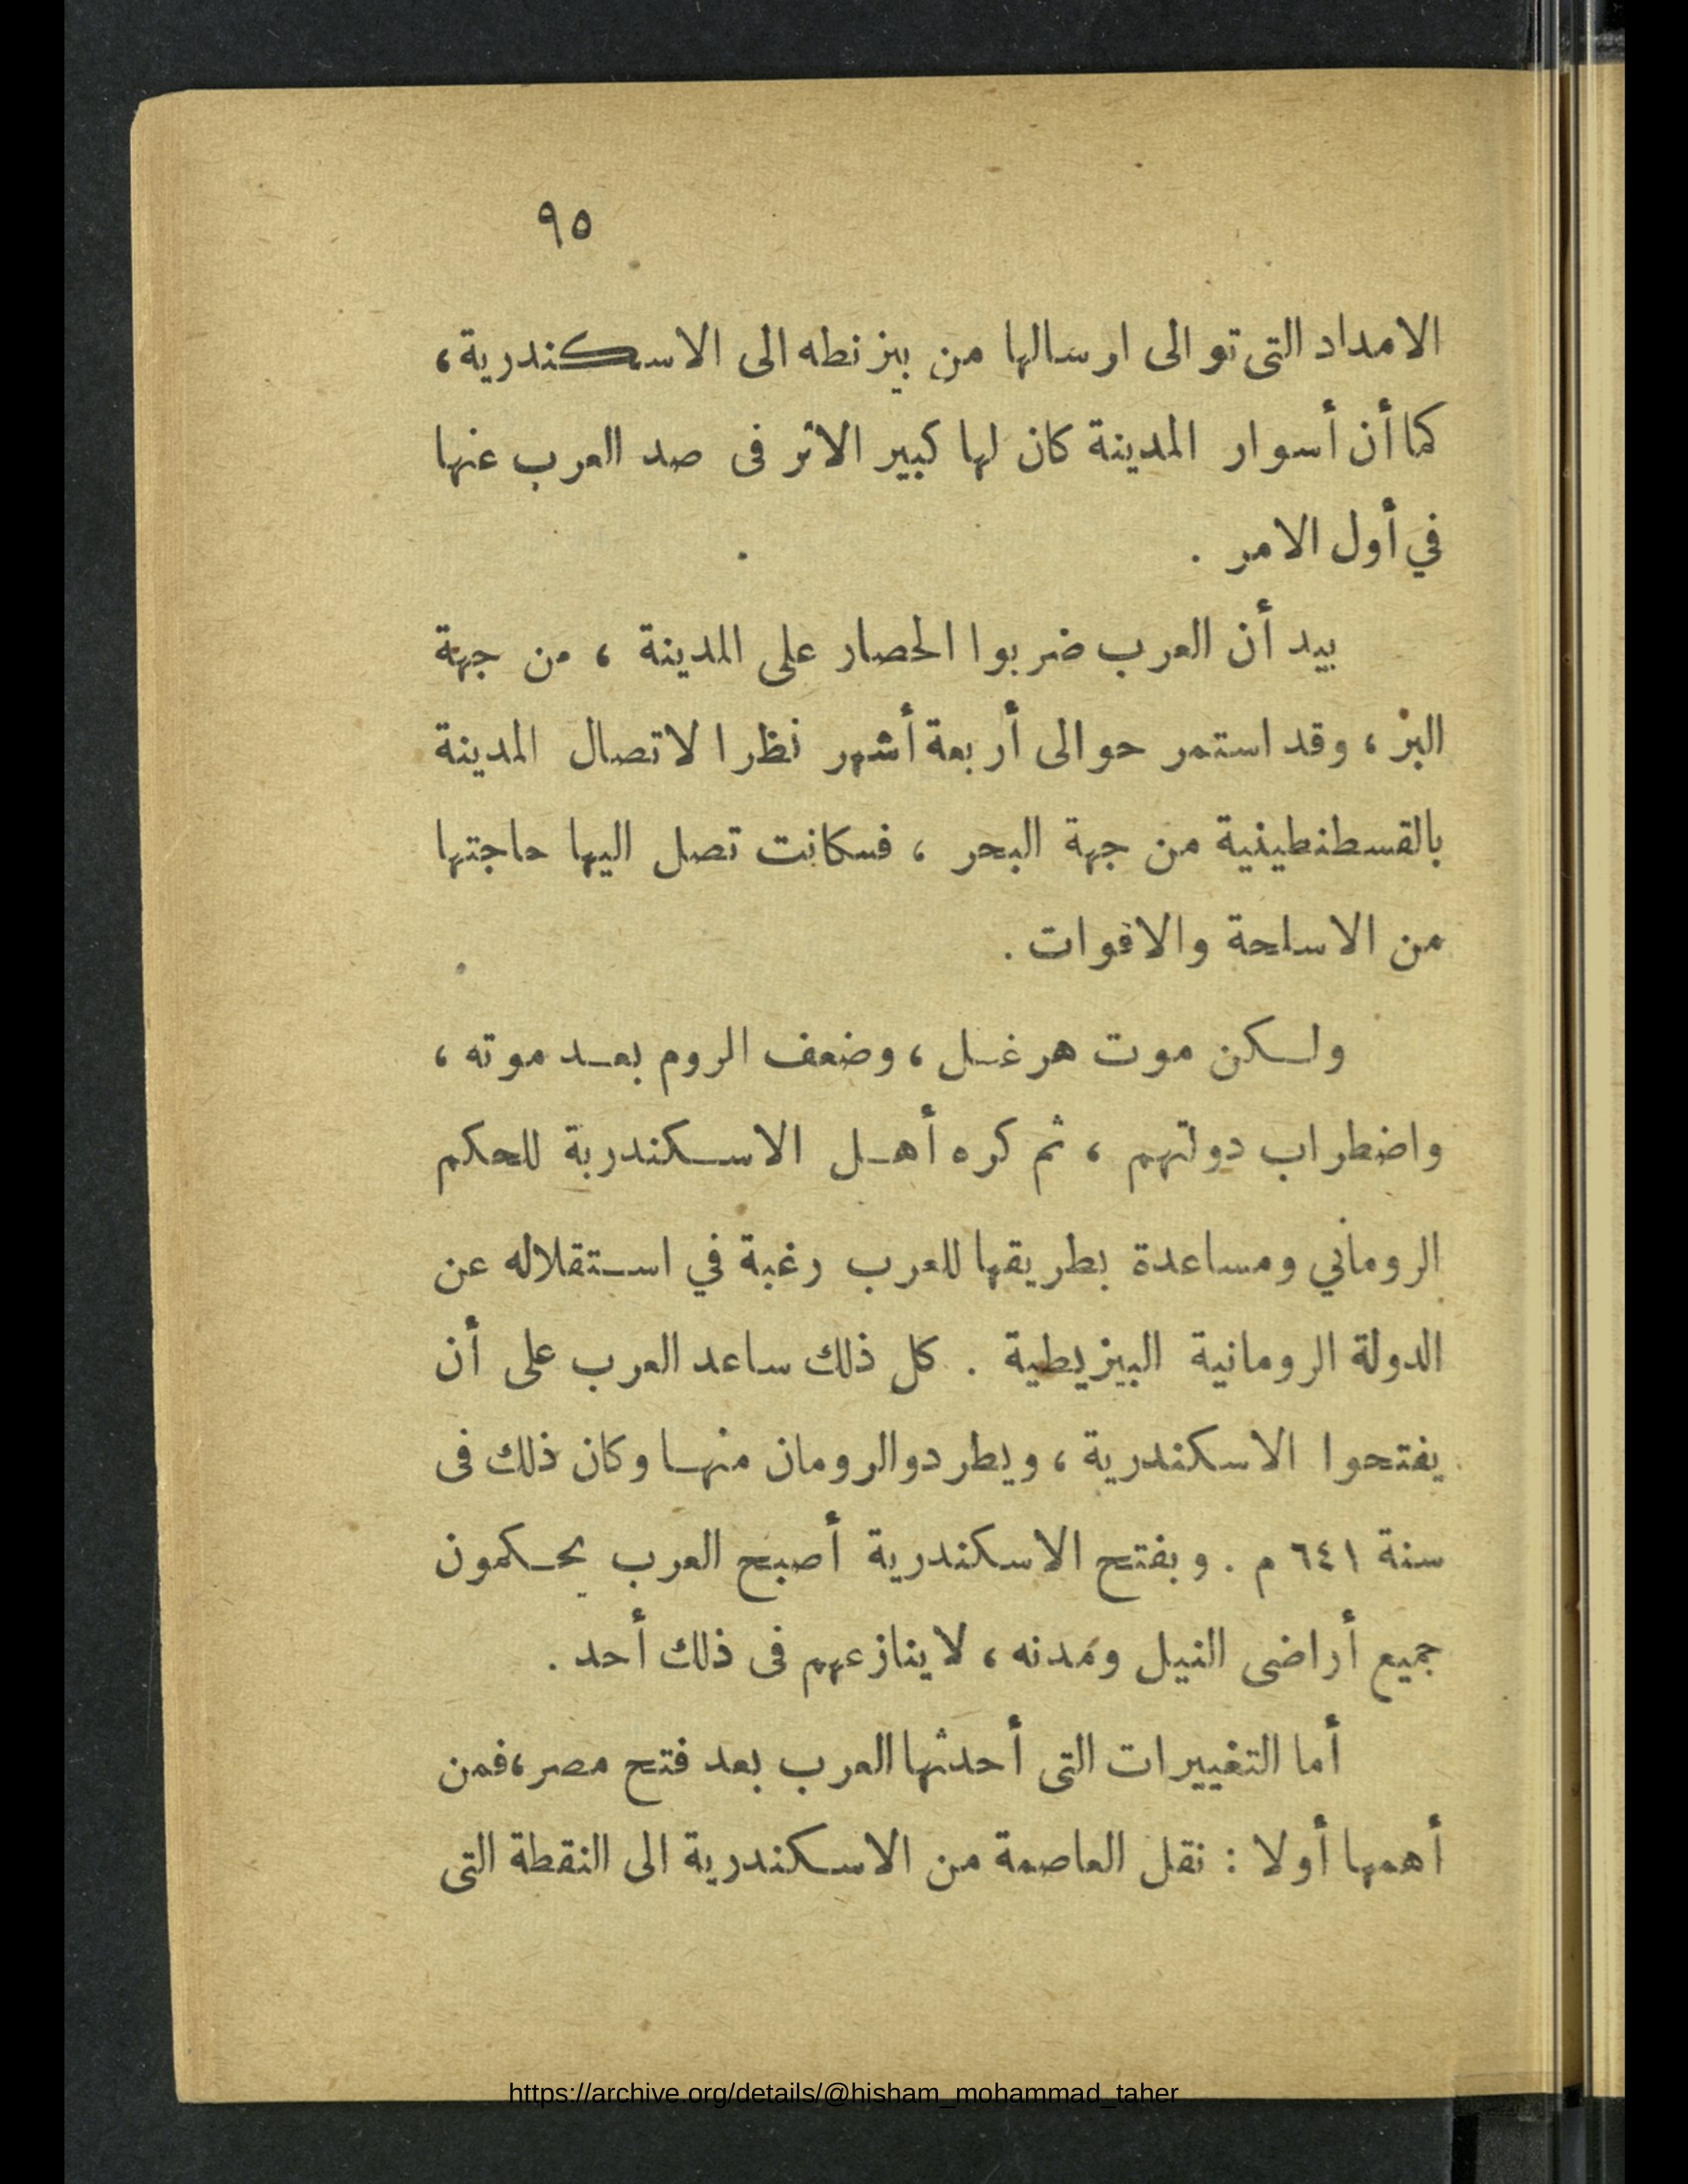 ٩٥
الامداد التى توالى ارسالها من بيزنطه الى الاسكندرية ،
كما أن أسوار المدينة كان لها كبير الاثر فى صد العرب عنها
في أول الامر .
بيد أن العرب ضربوا الحصار على المدينة ، من جهة
البر ، وقد استمر حوالى أربعة أشهر نظرا لاتصال المدينة
بالقسطنطينية من جهة البحر ، فكانت تصل اليها حاجتها
من الاسلحة والاقوات .
ولكن موت هرغل ، وضعف الروم بعد موته ،
واضطراب دولتهم ، ثم كره أهل الاسكندرية للحكم
الروماني ومساعدة بطريقها للعرب رغبة في استقلاله عن
الدولة الرومانية البيزيطية . كل ذلك ساعد العرب على أن
يفتحوا الاسكندرية ، ويطردوا الرومان منها وكان ذلك فى
سنة ٦٤١ م . وبفتح الاسكندرية أصبح العرب يحكمون
جميع أراضى النيل ومَدنه ، لا ينازعهم فى ذلك أحد .
أما التغييرات التى أحدثها العرب بعد فتح مصر ، فمن
أهمها أولا : نقل العاصمة من الاسكندرية الى النقطة التى
https://archive.org/details/@hisham_mohammad_taher